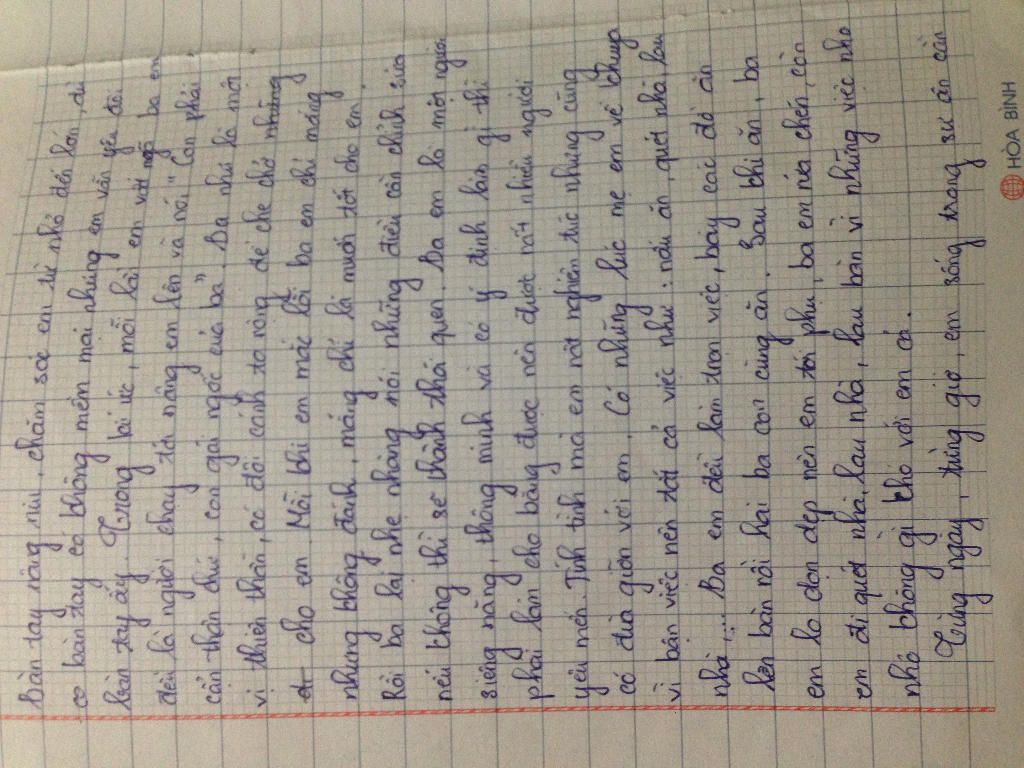 Bàn tay nâng niu, chăm sóc em từ nhỏ đến lớn, dù
có bàn tay có không mềm mại nhưng em vẫn yêu đôi
bàn tay ấy. Trong kí ức, mỗi lần em vất ngã ba em
đều là người chạy tới nâng em lên và nói " Con phải
cẩn thận chứ, con gái ngốc của ba". Ba như là một
vị thiên thần, có đôi cánh to rộng để che chở những
cho em. Mỗi khi em mắc lỗi ba em chỉ mắng
nhưng không đánh, mắng chỉ là muốn tốt cho em.
Rồi ba lại nhẹ nhàng nói những điều cần chỉnh sửa
nếu không thì sẽ thành thói quen. Ba em là một người
siêng năng, thông minh và có ý định làm gì thì
phải làm cho bằng được nên được rất nhiều người
yêu mến. Tính tình ba em rất nghiêm túc nhưng cũng
có đùa giỡn với em. Có những lúc mẹ em về khuya
vì bận việc nên tất cả việc như: nấu ăn, quét nhà, lau
nhà.... Ba em đều làm trọn việc, bày các đồ ăn
lên bàn rồi hai ba con cùng ăn. Sau khi ăn, ba
em lo dọn dẹp nên em tới phụ, ba em rửa chén, còn
em đi quét nhà, lau nhà, lau bàn vì những việc nho
nhỏ không gì khó với em cả.
Từng ngày, từng giờ, em sống trong sự ân cần
HÒA BÌNH